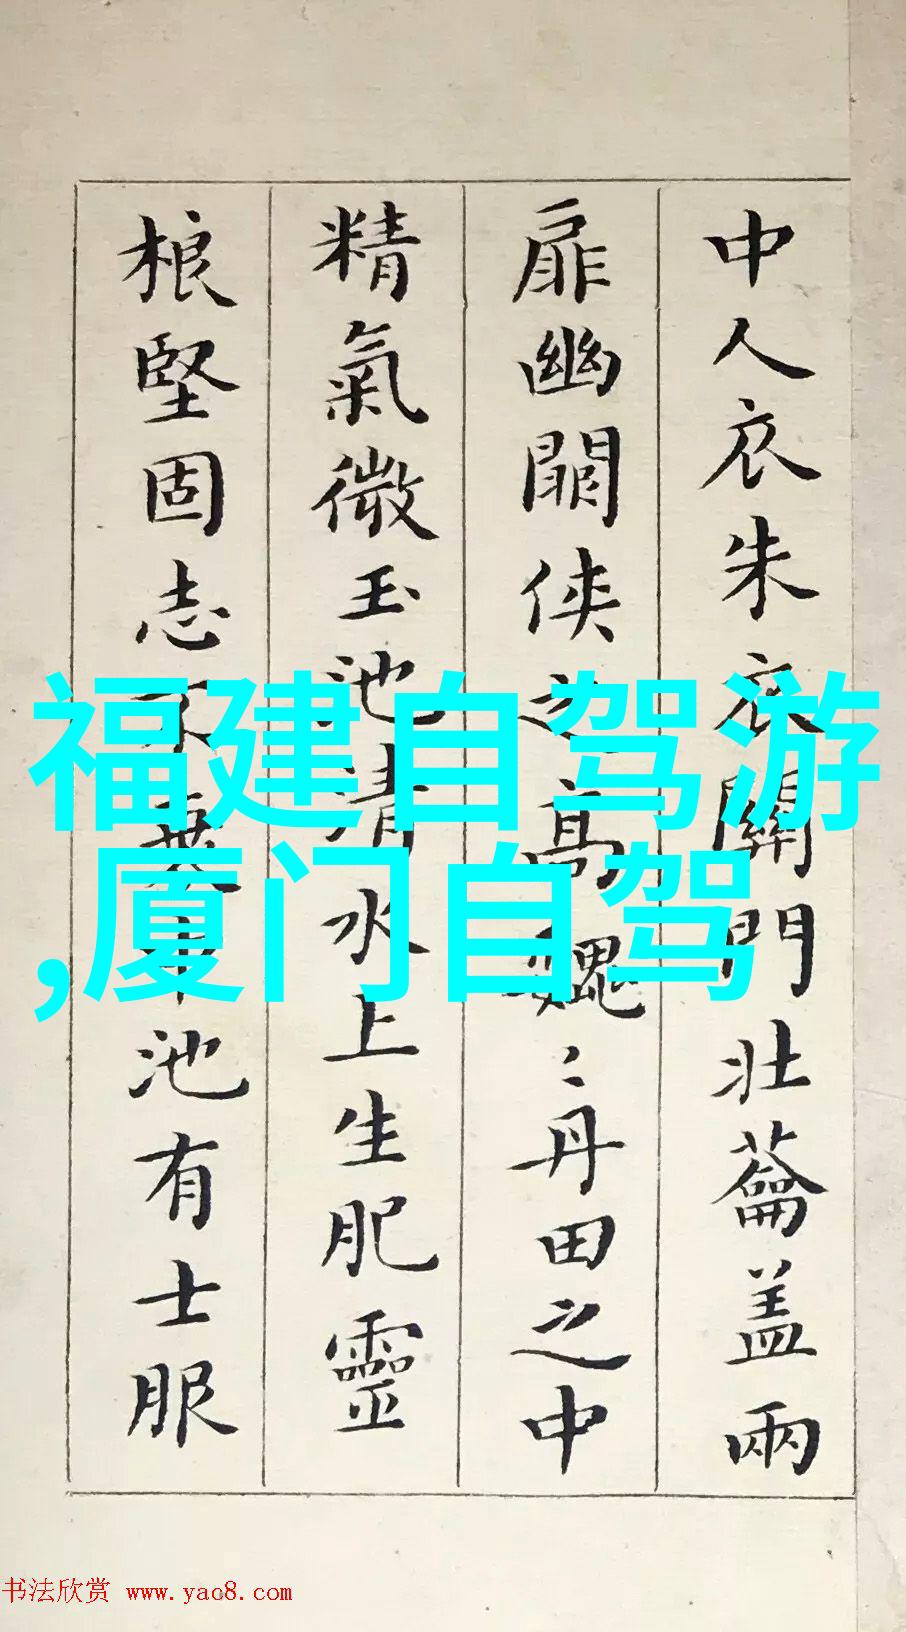 中人衣朱衣關門壯蘥盖兩
扉幽關侠之高巍〻丹田之中
精氣微玉池清水上生肥靈
根堅固志不衰中池有士服
福建自驾游
,厦门自驾
书法欣赏 www.yac8.com